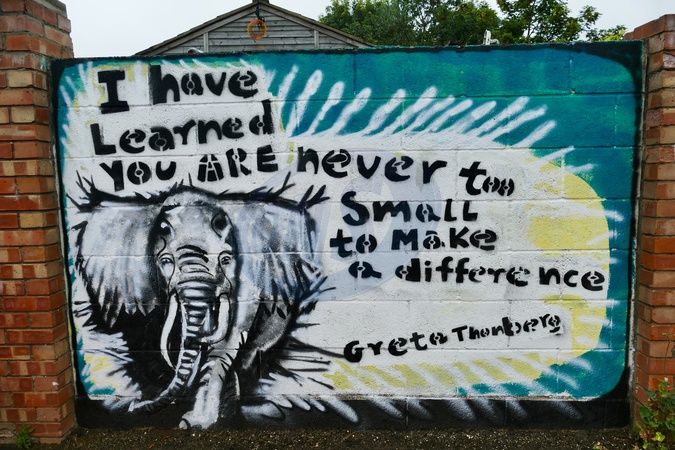 I have
Learned
YOU ARE never too
Small
to Make
a difference
Greta Thonberg